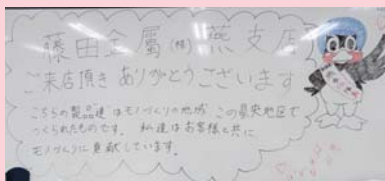 藤田金属㈱燕支店
ご来店頂きありがとうございます
こちらの製品達はモノづくりの地域 この県央地区で
つくられたものです。私達はお客様と共に
モノづくりに貢献しています。